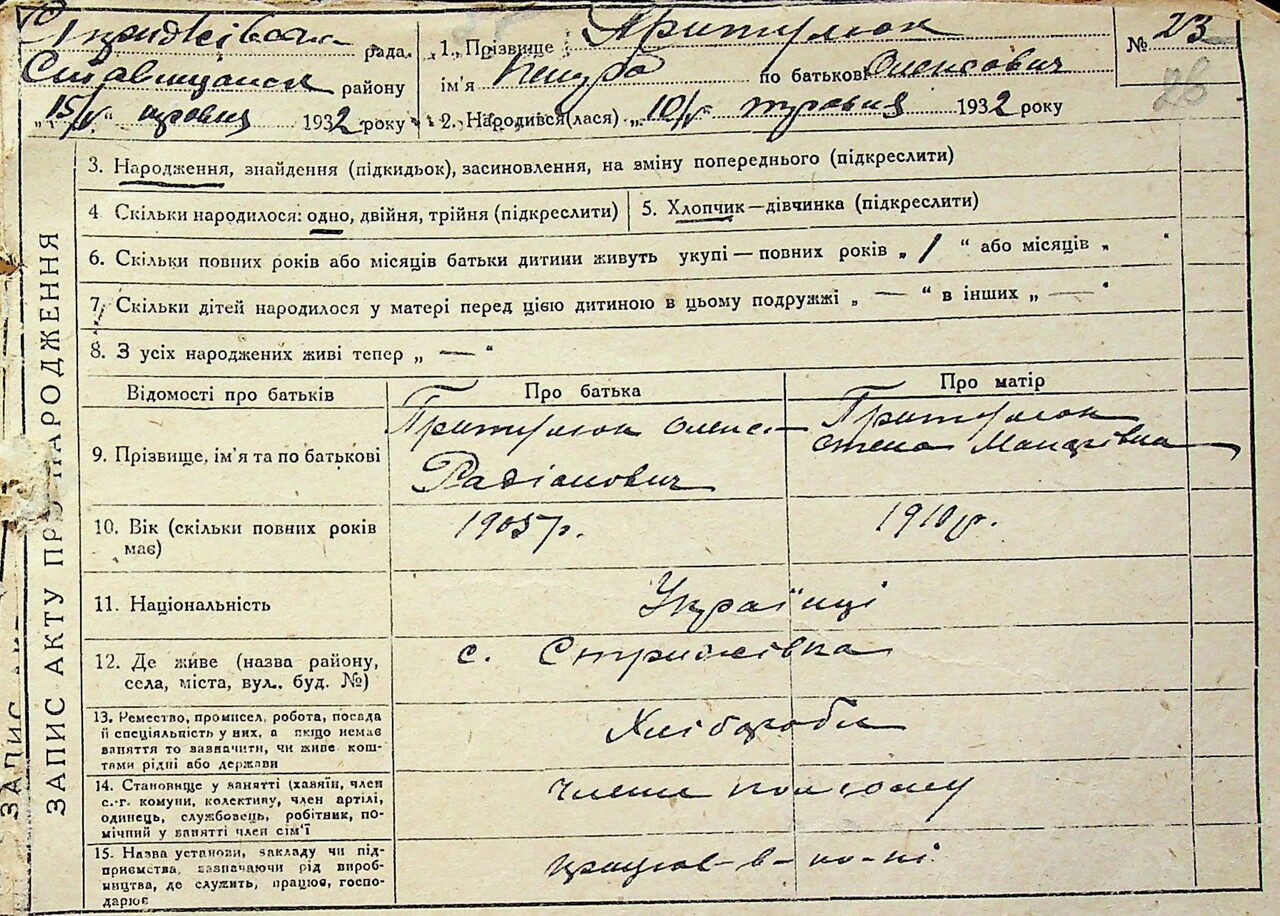 Стрижівська рада.
Ставищанськ району
„15/V“ травня 1932 року
1. Прізвище Притулюк
ім'я по батькові Олексович
2. Народився(лася) „10/V“ травня 1932 року
№ 23
28
ЗАПИС АКТУ ПРО НАРОДЖЕННЯ
3. Народження, знайдення (підкидьок), засиновлення, на зміну попереднього (підкреслити)
4 Скільки народилося: одно, двійня, трійня (підкреслити)
5. Хлопчик—дівчинка (підкреслити)
6. Скільки повних років або місяців батьки дитини живуть укупі — повних років „ 1 “ або місяців „ “
7. Скільки дітей народилося у матері перед цією дитиною в цьому подружжі „ — “ в інших „ — “
8. З усіх народжених живі тепер „ — “
Відомості про батьків
Про батька
Про матір
9. Прізвище, ім'я та по батькові
Притулюк Олекса
Радіанович
Притулюк
10. Вік (скільки повних років
має)
1905 р.
1910 р.
11. Національність
Українці
12. Де живе (назва району,
села, міста, вул.. буд. №)
с. Стрижівка
13. Ремество, промисел, робота, посада
й спеціяльність у них, а якщо немає
заняття то зазначити, чи живе кош-
тами рідні або держави
Хлібороби
14. Становище у занятті (хазяїн, член
с.-г. комуни, колективу, член артілі,
одинець, службовець, робітник, по-
мічний у занятті член сім'ї
члени колгоспу
15. Назва установи, закладу чи під-
приємства, зазначаючи рід вироб-
ництва, де служить, працює, госпо-
дарює
ЗАПИС